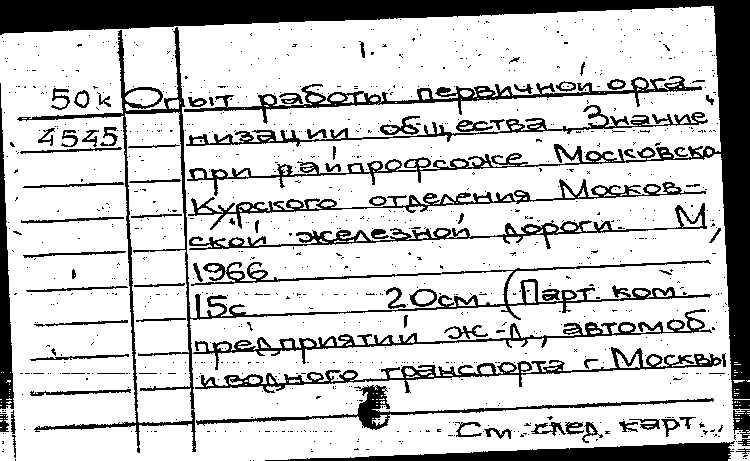 1.
50к Опыт работы первичной орга-
4545 низации общества „Знание"
при райпрофсоже Московско-
Курского отделения Москов-
ской железной дороги. М,
1966.
15с 20см. (Парт. ком.
предприятий ж-д., автомоб.
и водного транспорта г. Москвы
См. след. карт.